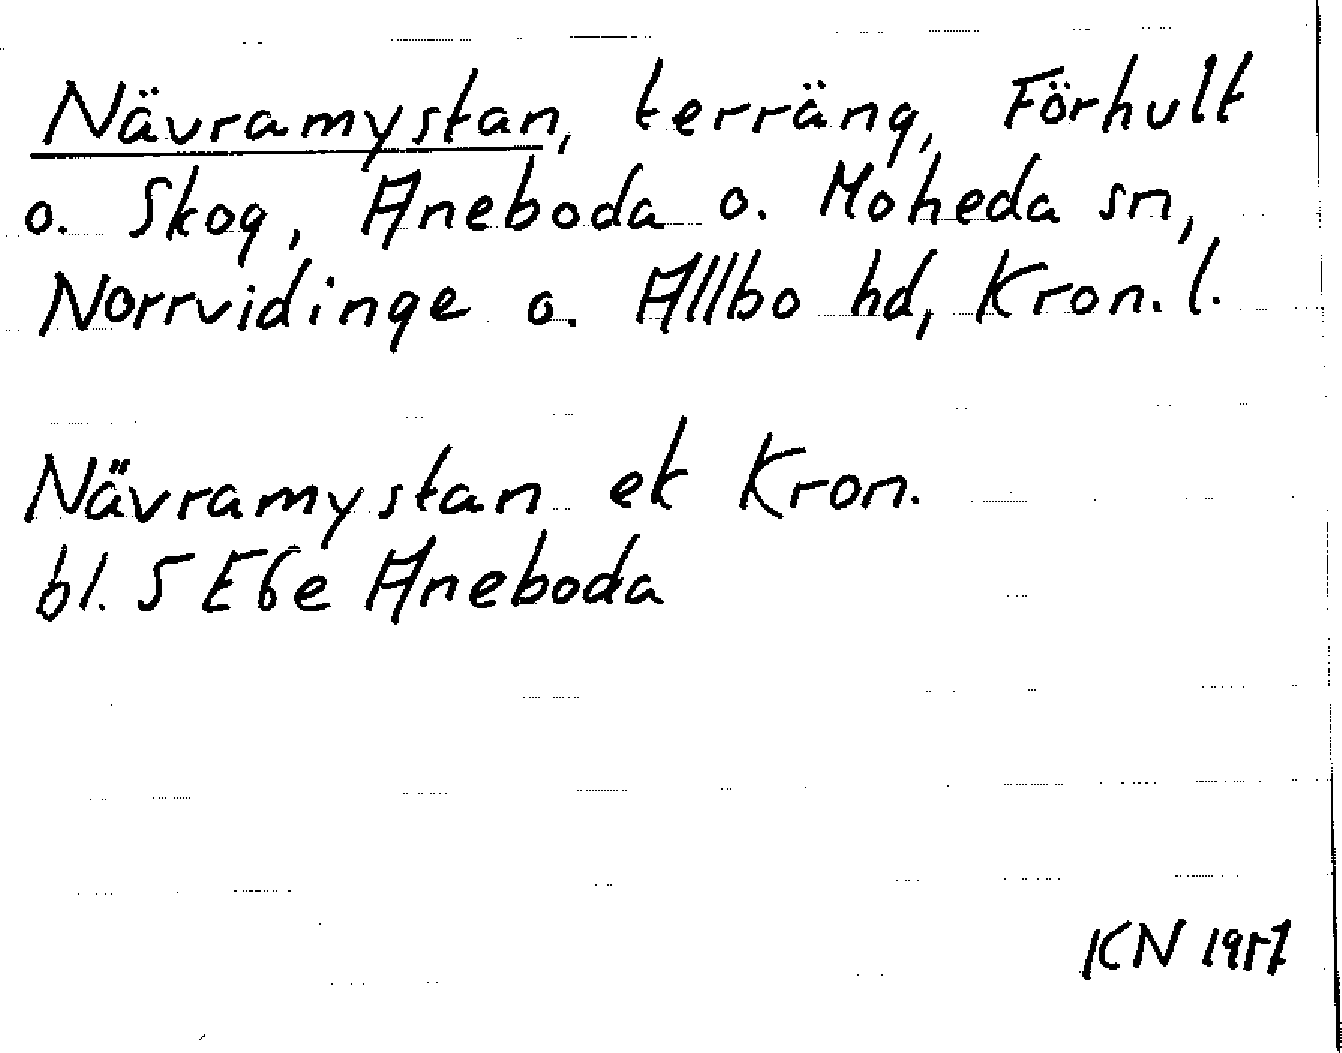 Nävramystan, terräng, Förhult
o. Skog, Aneboda o. Moheda sn,
Norrvidinge o. Allbo hd, Kron. l.
Nävramystan ek Kron.
bl. 5 E6e Aneboda
KN 1957